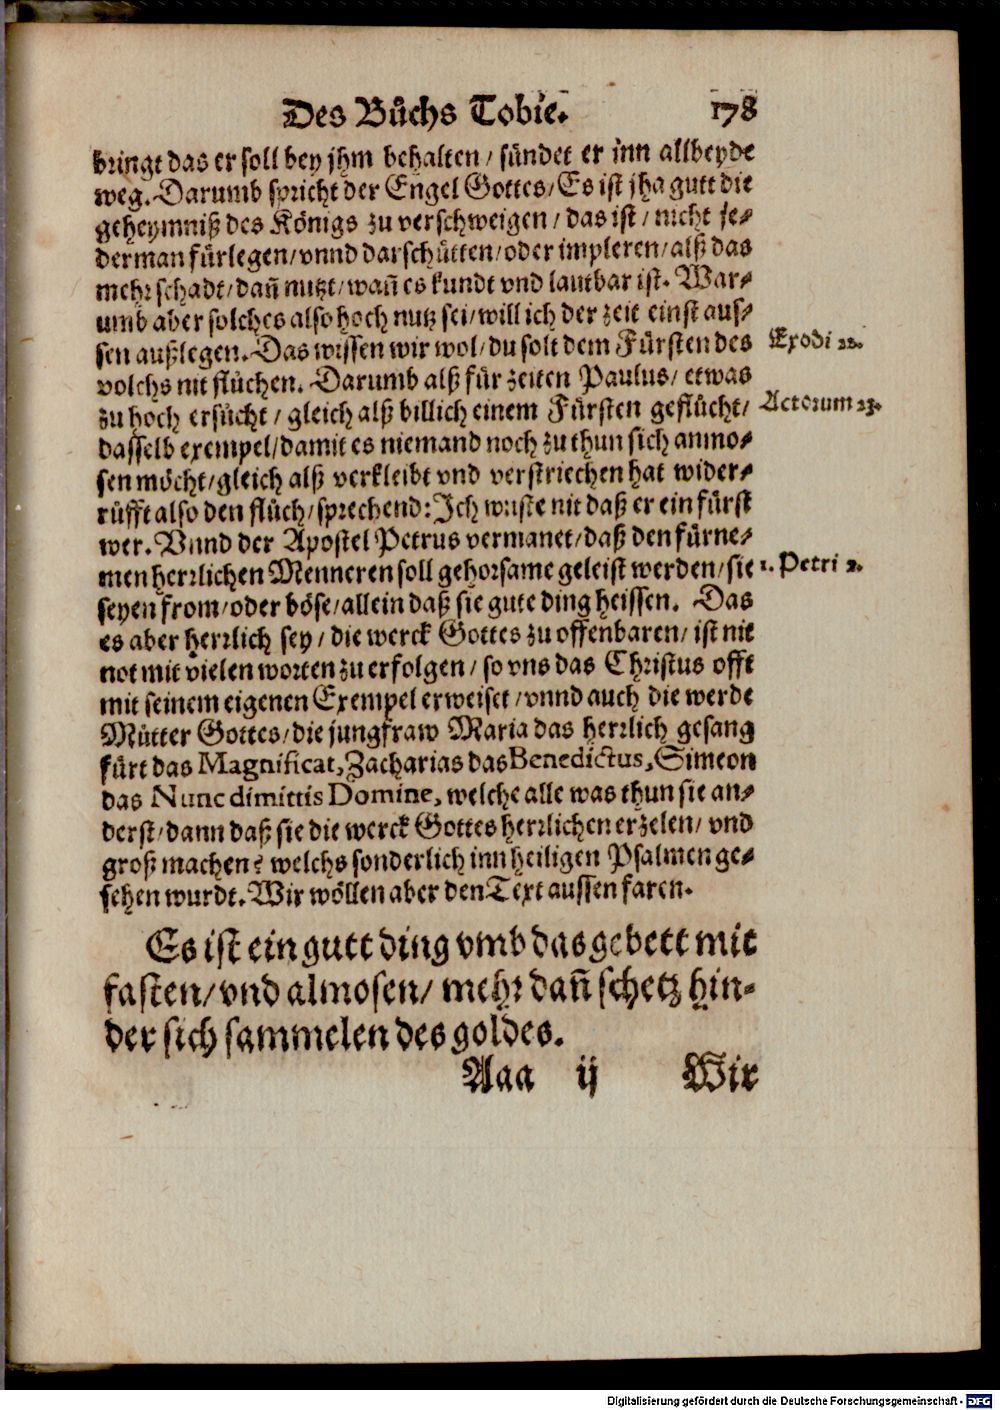 Des Bůchs Tobie. 178
bringt das er soll bey jhm behalten / sündet er inn allbeyde
weg. Darumb spricht der Engel Gottes / Es ist jha gutt die
geheymniß des Königs zu verschweigen / das ist / nicht je-
derman fürlegen / vnnd darschütten / oder impleren / alß das
mehr schadt / dañ nutzt / wañ es kundt vnd lautbar ist. War-
umb aber solches also hoch nutz sei / will ich der zeit einst aus-
sen außlegen. Das wissen wir wol / du solt dem Fürsten des
Exodi 22.
volchs nit flüchen. Darumb alß für zeiten Paulus / etwas
zu hoch ersücht / gleich alß billich einem Fürsten geflücht /
Actorum 23.
dasselb exempel / damit es niemand noch zu thun sich anmo-
sen möcht / gleich alß verkleibt vnd verstriechen hat wider-
rüfft also den flüch / sprechend: Ich wuste nit daß er ein fürst
wer. Vnnd der Apostel Petrus vermanet / daß den fürne-
men herrlichen Menneren soll gehorsame geleist werden / sie
1. Petri 2.
seyen from / oder böse / allein daß sie gute ding heissen. Das
es aber herrlich sey / die werck Gottes zu offenbaren / ist nit
not mit vielen worten zu erfolgen / so vns das Christus offt
mit seinem eigenen Exempel erweiset / vnnd auch die werde
Mütter Gottes / die jungfraw Maria das herrlich gesang
fürt das Magnificat, Zacharias das Benedictus, Simeon
das Nunc dimittis Domine, welche alle was thun sie an-
derst / dann daß sie die werck Gottes herrlichen erzelen / vnd
groß machen? welchs sonderlich inn heiligen Psalmen ge-
sehen wurdt. Wir wöllen aber den Text aussen faren.
Es ist ein gutt ding vmb das gebett mit
fasten / vnd almosen / mehr dañ schetz hin-
der sich sammelen des goldes.
Aaa ij Wir
Digitalisierung gefördert durch die Deutsche Forschungsgemeinschaft - DFG